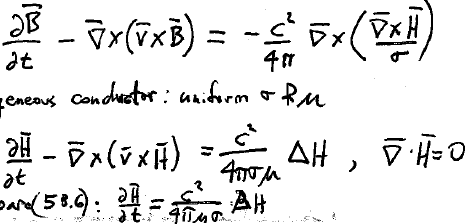 ∂B̄/∂t − ∇̄×(v̄×B̄) = −c²/4π ∇̄×(∇̄×H̄/σ)
geneous conductor: uniform σ & μ
∂H̄/∂t − ∇̄×(v̄×H̄) = c²/4πσμ ΔH , ∇̄·H̄=0
pare(58.6): ∂H̄/∂t = c²/4πμσ ΔH